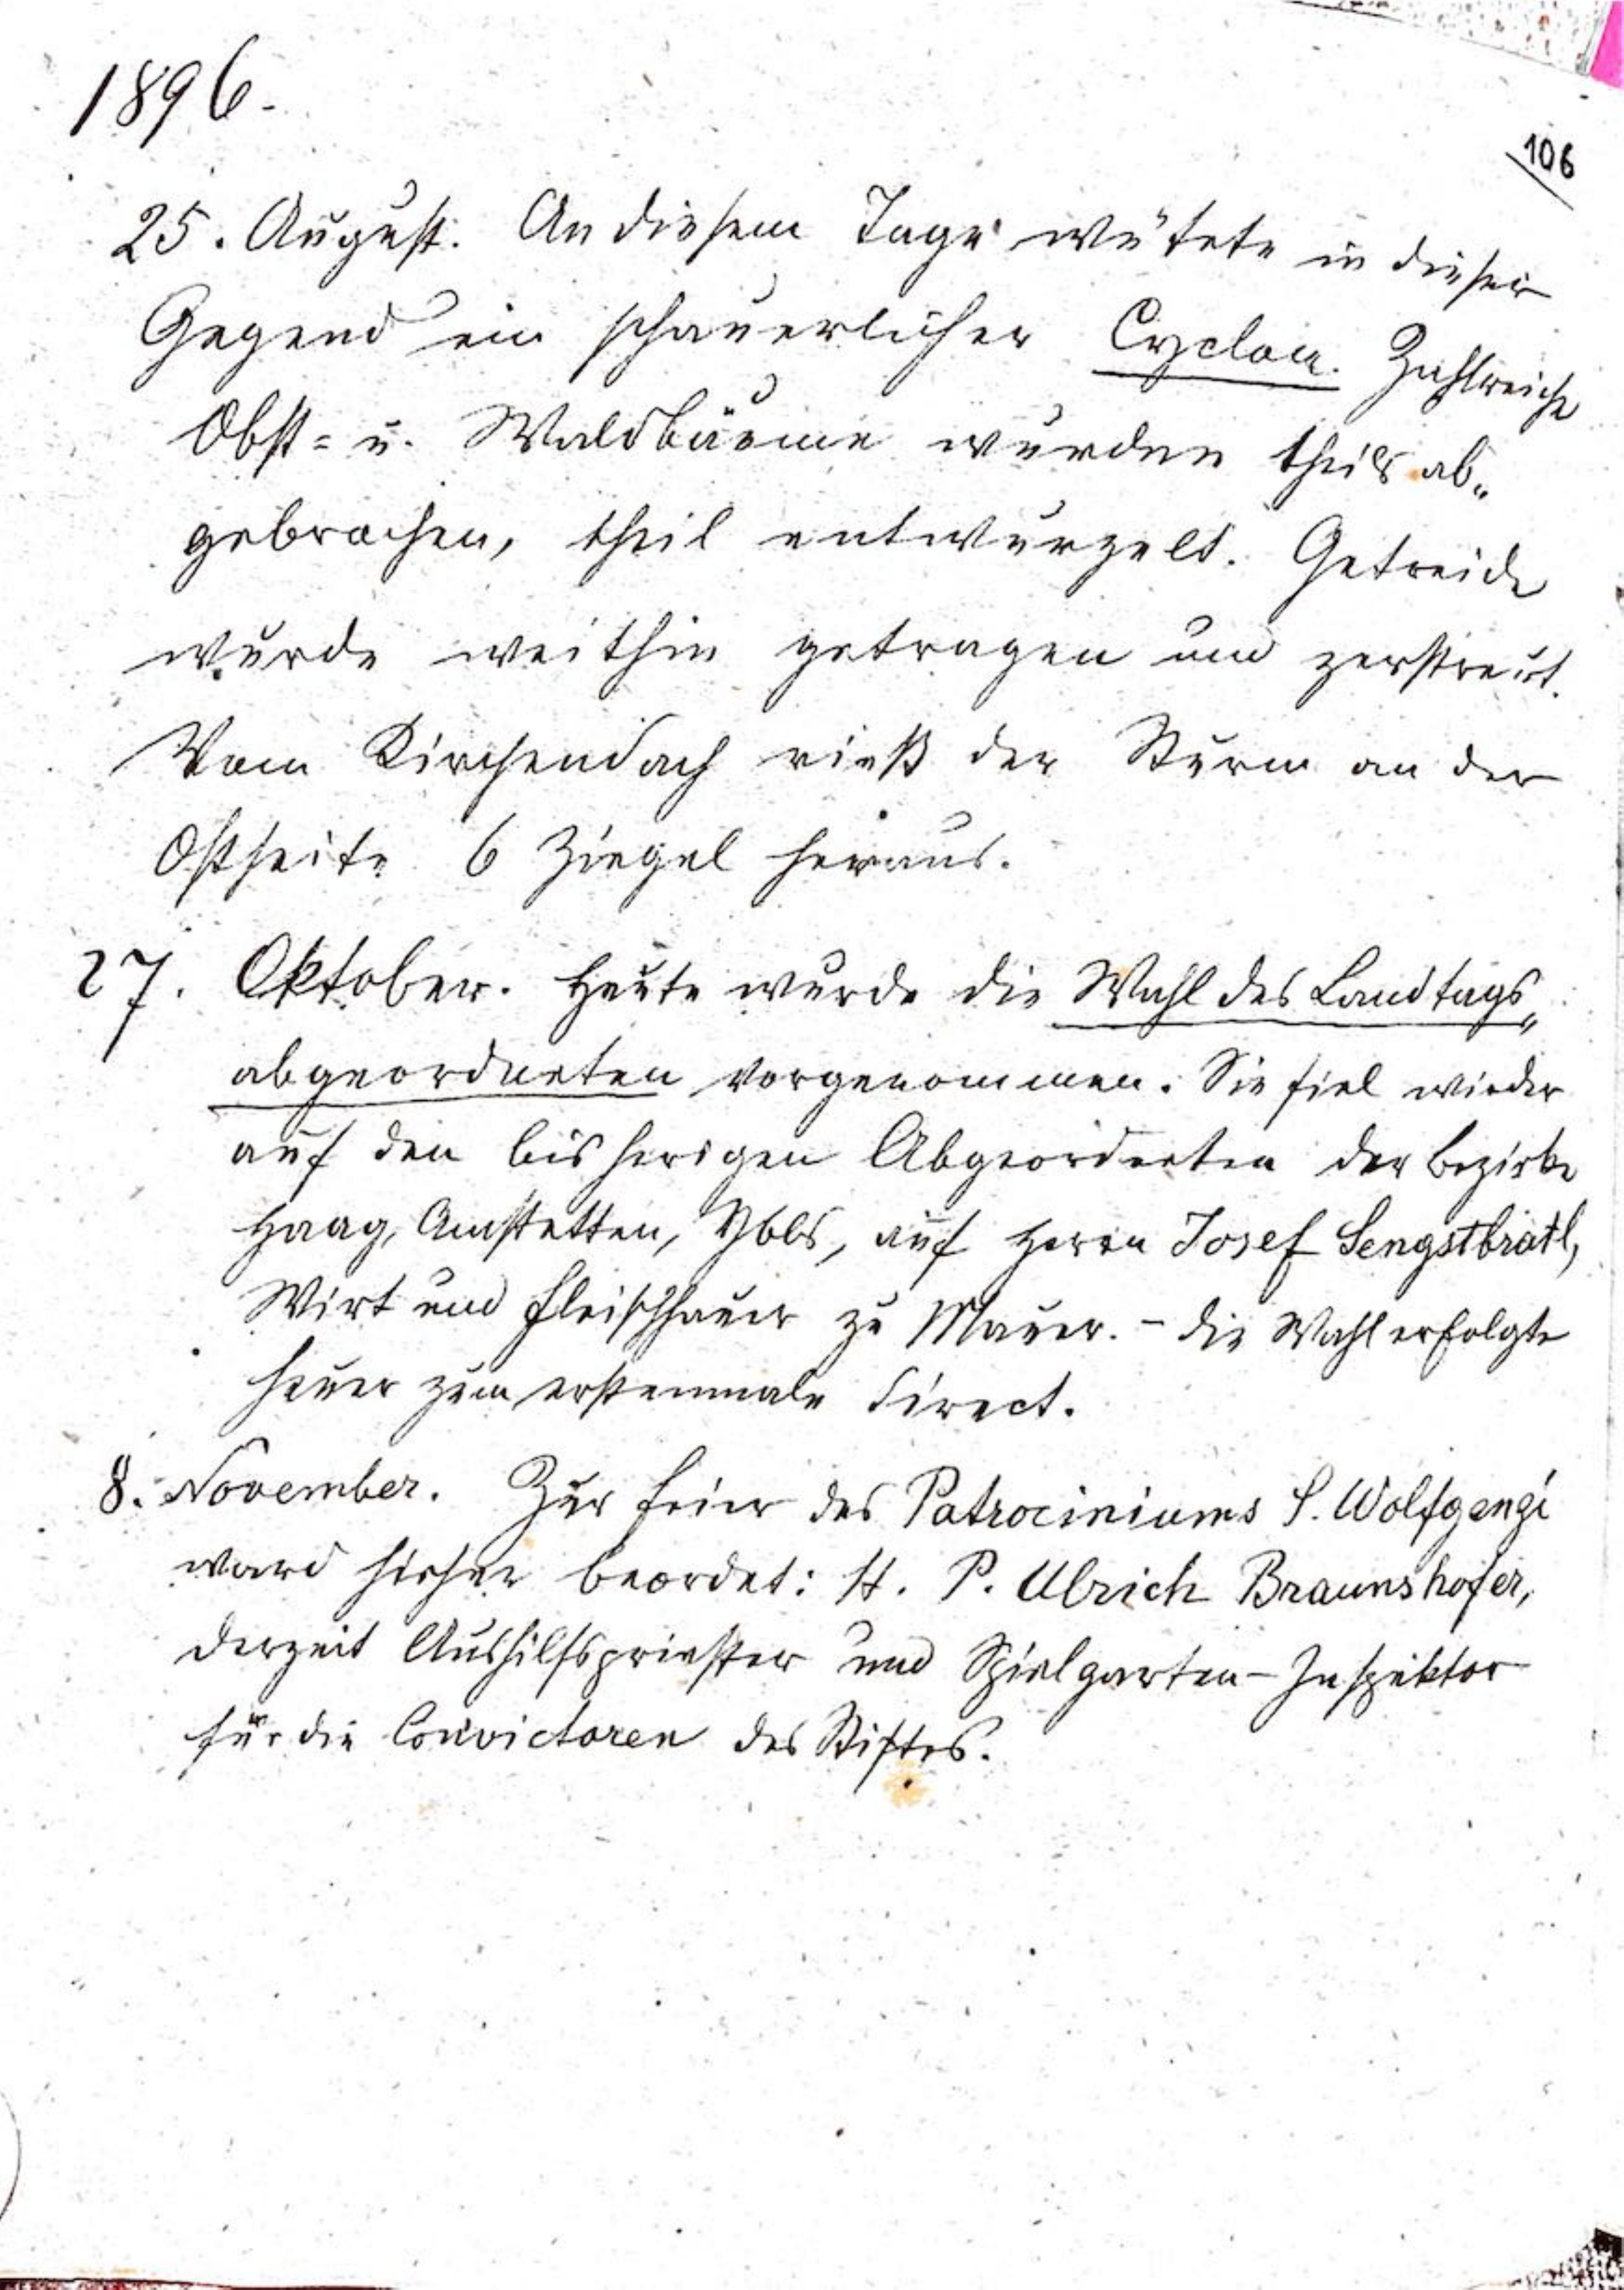 1896.
106
25. August. An diesem Tage wütete in dieser
Gegend ein schauerlicher Cyclon. Zahlreiche
Obst= u. Waldbäume wurden theils ab„
gebrochen, theil entwurzelt. Getreide
wurde weithin getragen und zerstreut.
Vom Kirchendach rieß der Sturm an der
Ostseite 6 Ziegel heraus.
27. Oktober. Heute wurde die Wahl des Landtags„
abgeordneten vorgenommen. Sie fiel wieder
auf den bisherigen Abgeordneten der Bezirke
Haag, Amstetten, Ybbs, auf Herrn Josef Sengstbratl,
Wirt und Fleischhauer zu Mauer. – Die Wahl erfolgte
heuer zum erstenmale direct.
8. November. Zur Feier des Patrociniums S. Wolfgangi
ward hieher beordet: H. P. Ulrich Braunshofer,
derzeit Aushilfspriester und Spielgarten-Inspektor
für die Convictoren des Stiftes.